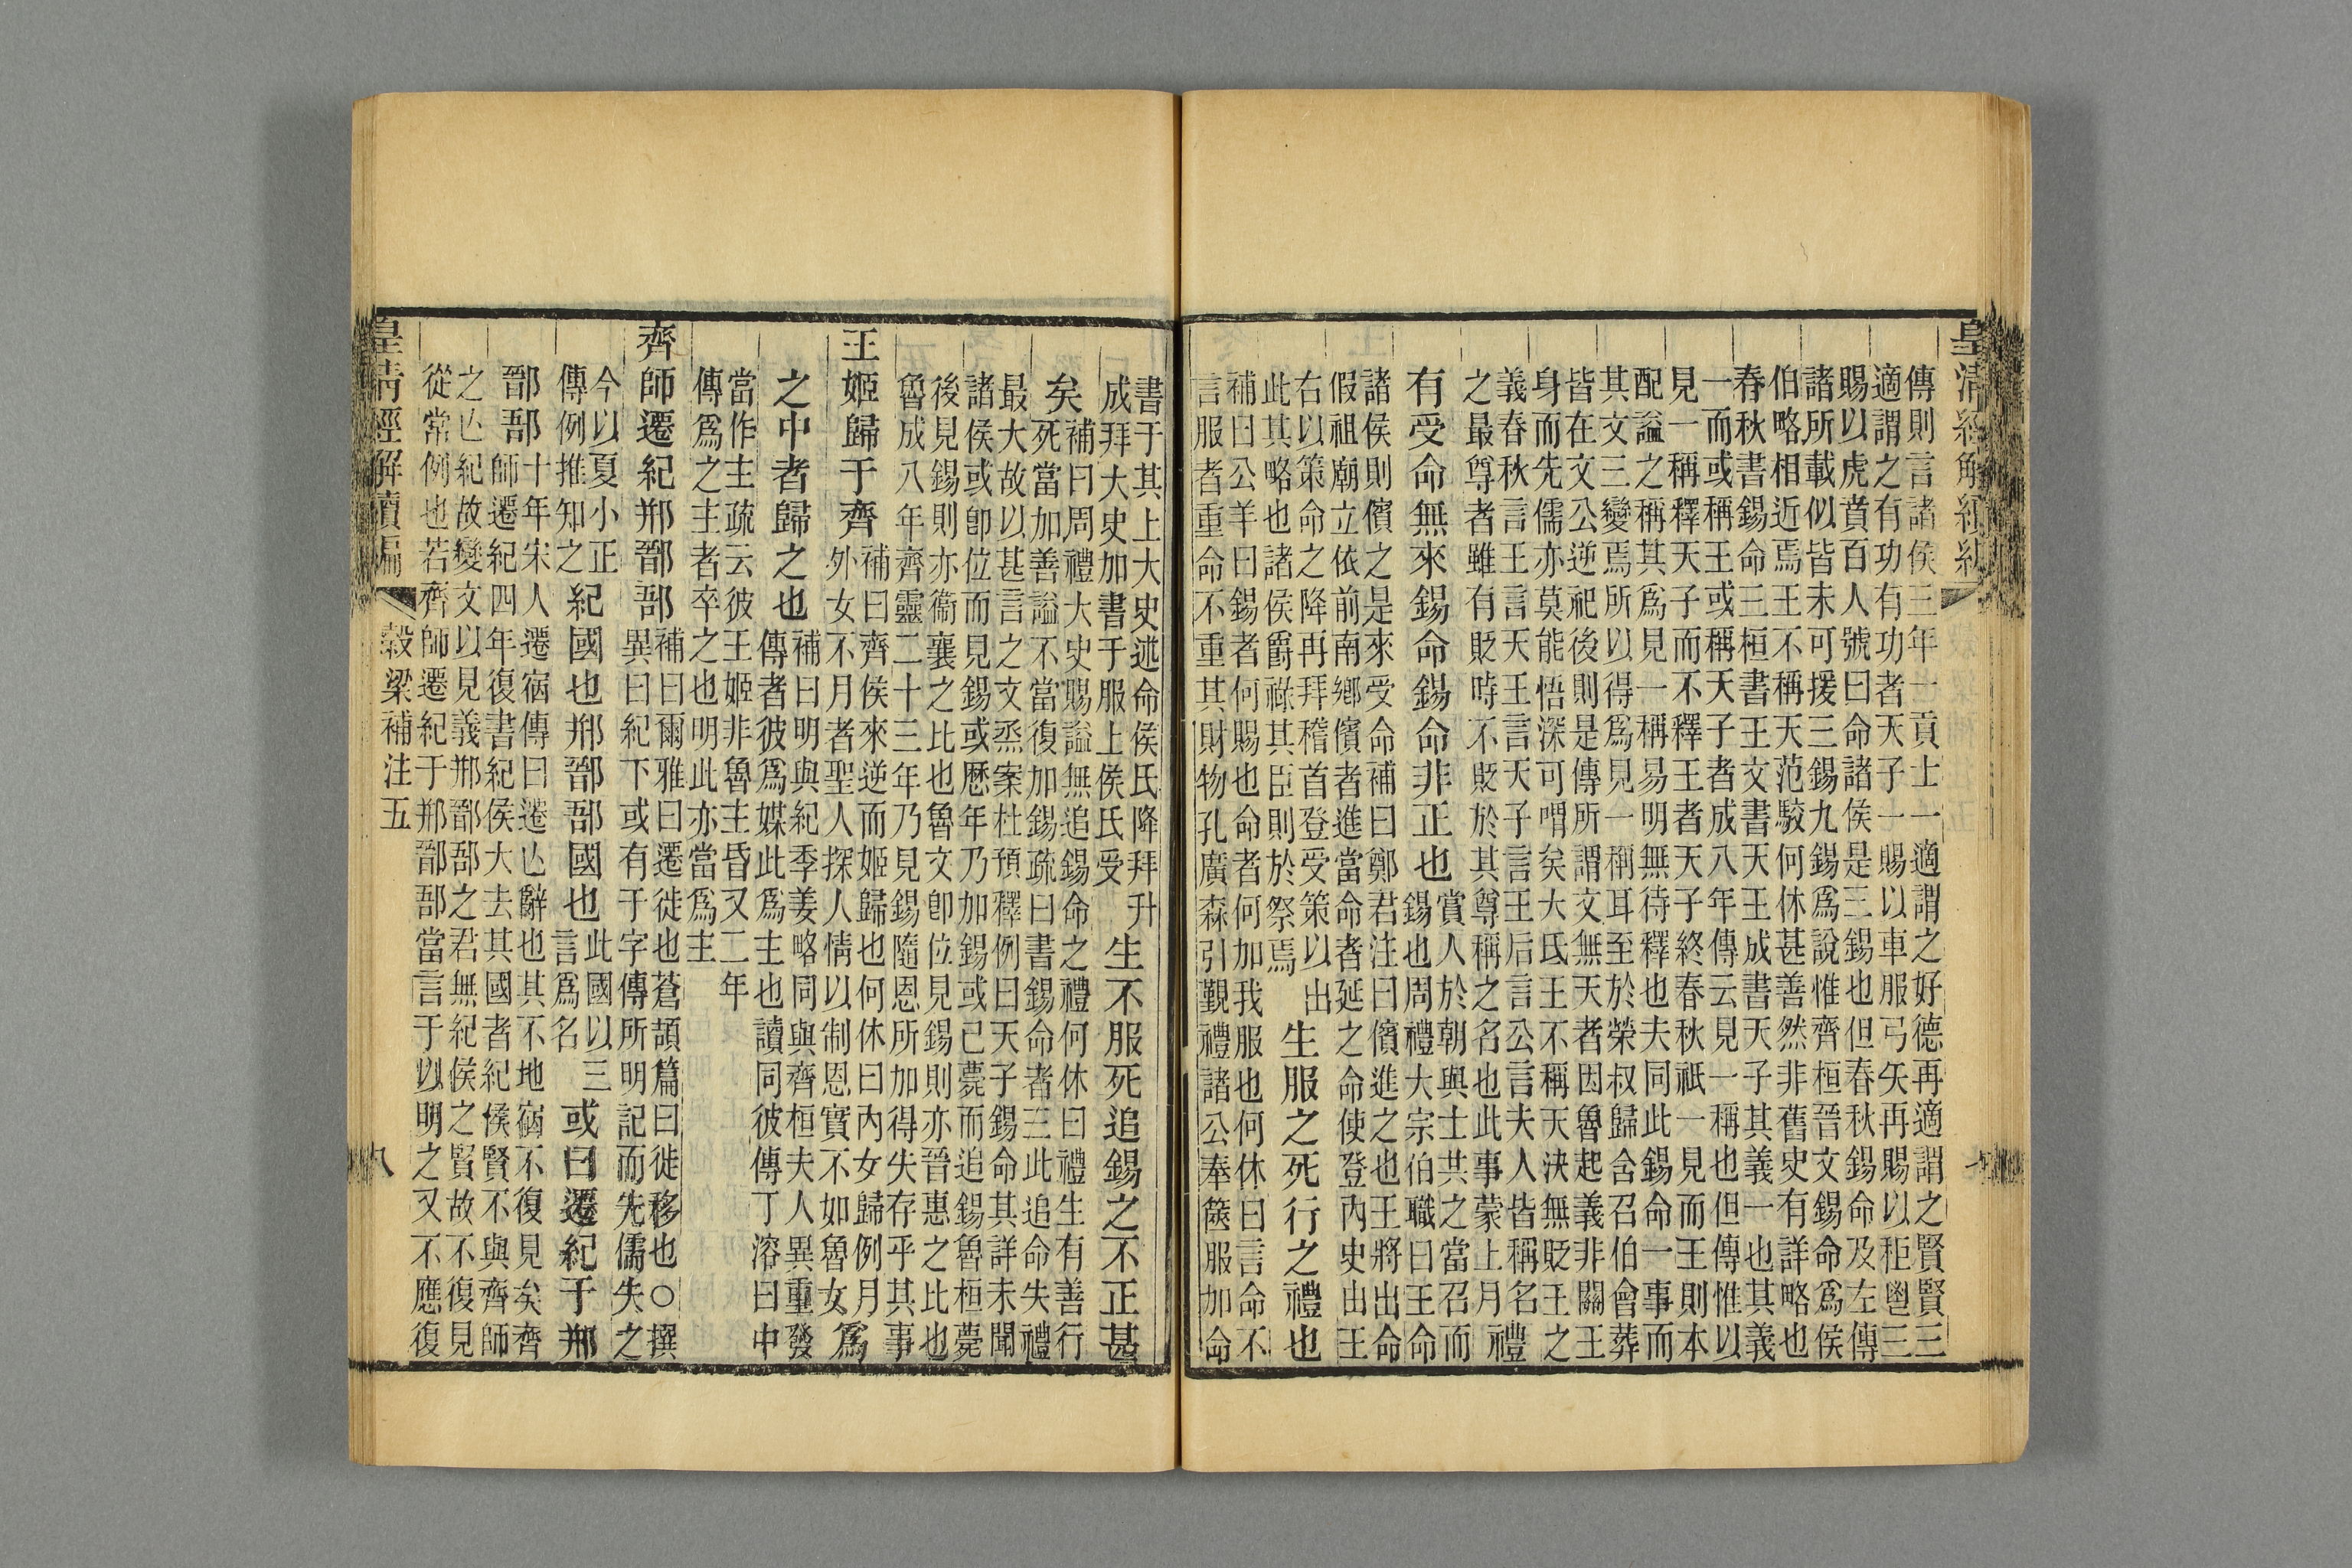 皇清經解續編
傳則言諸侯三年一貢士一適謂之好德再適謂之賢賢三
適謂之有功有功者天子一賜以車服弓矢再賜以秬鬯三
賜以虎賁百人號曰命諸侯是三錫也但春秋錫命及左傳
諸所載似皆未可援三錫九錫爲說惟齊桓晉文錫命爲侯
伯略相近焉王不稱天范駮何休甚善然非舊史有詳略也
春秋書錫命三桓書王文書天王成書天子其義一也其義
一而或稱王或稱天子者成八年傳云見一稱也但傳惟以
見一稱釋天子而不釋王者天子終春秋祇一見而王則本
配諡之稱其爲見一稱易明無待釋也夫同此錫命一事而
其文三變焉所以得爲見一稱耳至於榮叔歸含召伯會葬
皆在文公逆祀後則是傳所謂文無天者因魯起義非關王
身而先儒亦莫能悟深可喟矣大氐王不稱天決無貶王之
義春秋言王言天王言天子言王后言公言夫人皆稱名禮
之最尊者雖有貶時不貶於其尊稱之名也此事蒙上月
有受命無來錫命錫命非正也
賞人於朝與士共之當召而
錫也周禮大宗伯職曰王命
諸侯則儐之是來受命補曰鄭君注曰儐進之也王將出命
假祖廟立依前南鄉儐者進當命者延之命使登內史由王
右以策命之降再拜稽首登受策以出
此其略也諸侯爵祿其臣則於祭焉
生服之死行之禮也
補曰公羊曰錫者何賜也命者何加我服也何休曰言命不
言服者重命不重其財物孔廣森引覲禮諸公奉篋服加命
書于其上大史述命侯氏降拜升
成拜大史加書于服上侯氏受
生不服死追錫之不正甚
矣
補曰周禮大史賜諡無追錫命之禮何休曰禮生有善行
死當加善諡不當復加錫疏曰書錫命者三此追命失禮
最大故以甚言之文烝案杜預釋例曰天子錫命其詳未聞
諸侯或卽位而見錫或歷年乃加錫或已薨而追錫魯桓薨
後見錫則亦衞襄之比也魯文卽位見錫則亦晉惠之比也
魯成八年齊靈二十三年乃見錫隨恩所加得失存乎其事
王姬歸于齊
補曰齊侯來逆而姬歸也何休曰內女歸例月
外女不月者聖人探人情以制恩實不如魯女
爲之中者歸之也
補曰明與紀季姜略同與齊桓夫人異重發
傳者彼爲媒此爲主也讀同彼傳丁溶曰中
當作主疏云彼王姬非魯主昏又二年
傳爲之主者卒之也明此亦當爲主
齊師遷紀郱鄑郚
補曰爾雅曰遷徙也蒼頡篇曰徙移也○撰
異曰紀下或有于字傳所明記而先儒失之
今以夏小正
傳例推知之
紀國也郱鄑郚國也
此國以三
言爲名
或曰遷紀于郱
鄑郚
十年宋人遷宿傳曰遷亾辭也其不地宿不復見矣齊
師遷紀四年復書紀侯大去其國者紀侯賢不與齊師
之亾紀故變文以見義郱鄑郚之君無紀侯之賢故不復見
從常例也若齊師遷紀于郱鄑郚當言于以明之又不應復
皇清經解續編
穀梁補注五
八